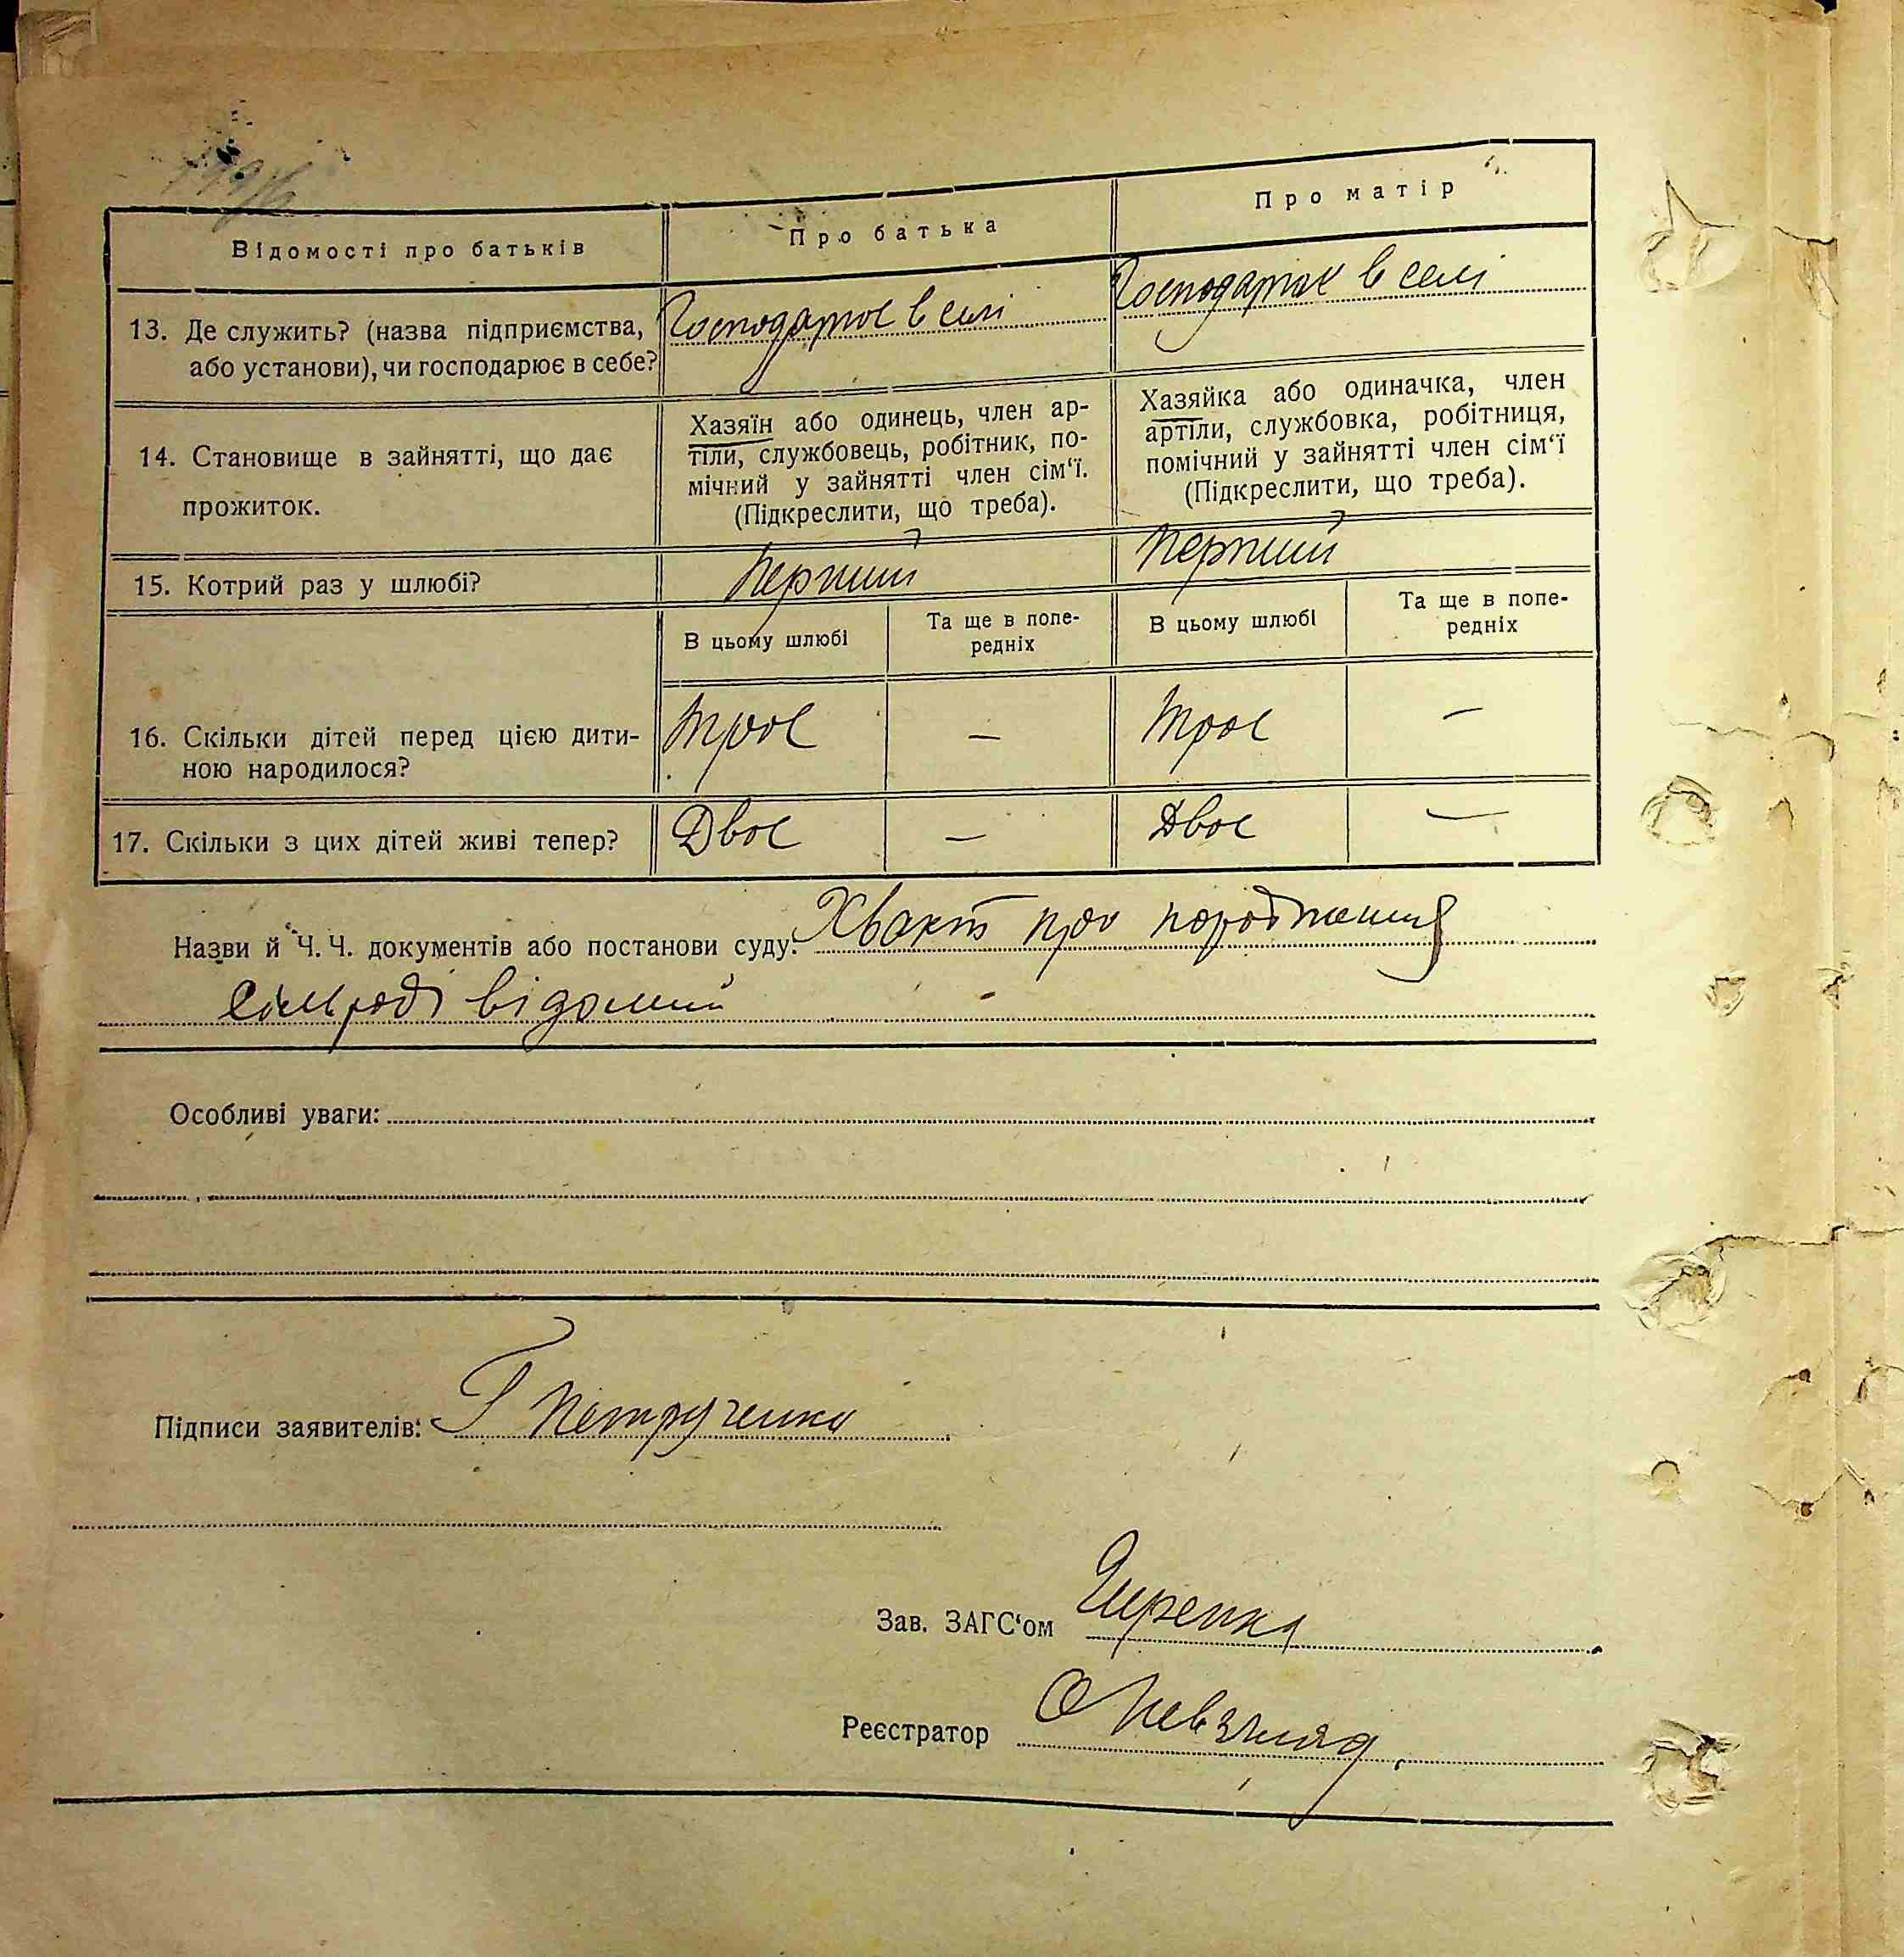 Відомості про батьків
Про батька
Про матір
13. Де служить? (назва підприємства,
або установи), чи господарює в себе?
Господарює в селі
Господарює в селі
14. Становище в зайнятті, що дає
прожиток.
Хазяїн або одинець, член ар-
тіли, службовець, робітник, по-
мічний у зайнятті член сім‘ї.
(Підкреслити, що треба).
Хазяйка або одиначка, член
артіли, службовка, робітниця,
помічний у зайнятті член сім‘ї
(Підкреслити, що треба).
15. Котрий раз у шлюбі?
Перший
Перший
В цьому шлюбі
Та ще в попе-
редніх
В цьому шлюбі
Та ще в попе-
редніх
16. Скільки дітей перед цією дити-
ною народилося?
Троє
—
Троє
—
17. Скільки з цих дітей живі тепер?
Двоє
—
Двоє
—
Назви й Ч. Ч. документів або постанови суду: Хвакт про народження
сільраді відомий
Особливі уваги:
Підписи заявителів: Г Петрученко
Зав. ЗАГС‘ом
Реєстратор О Невзгляд